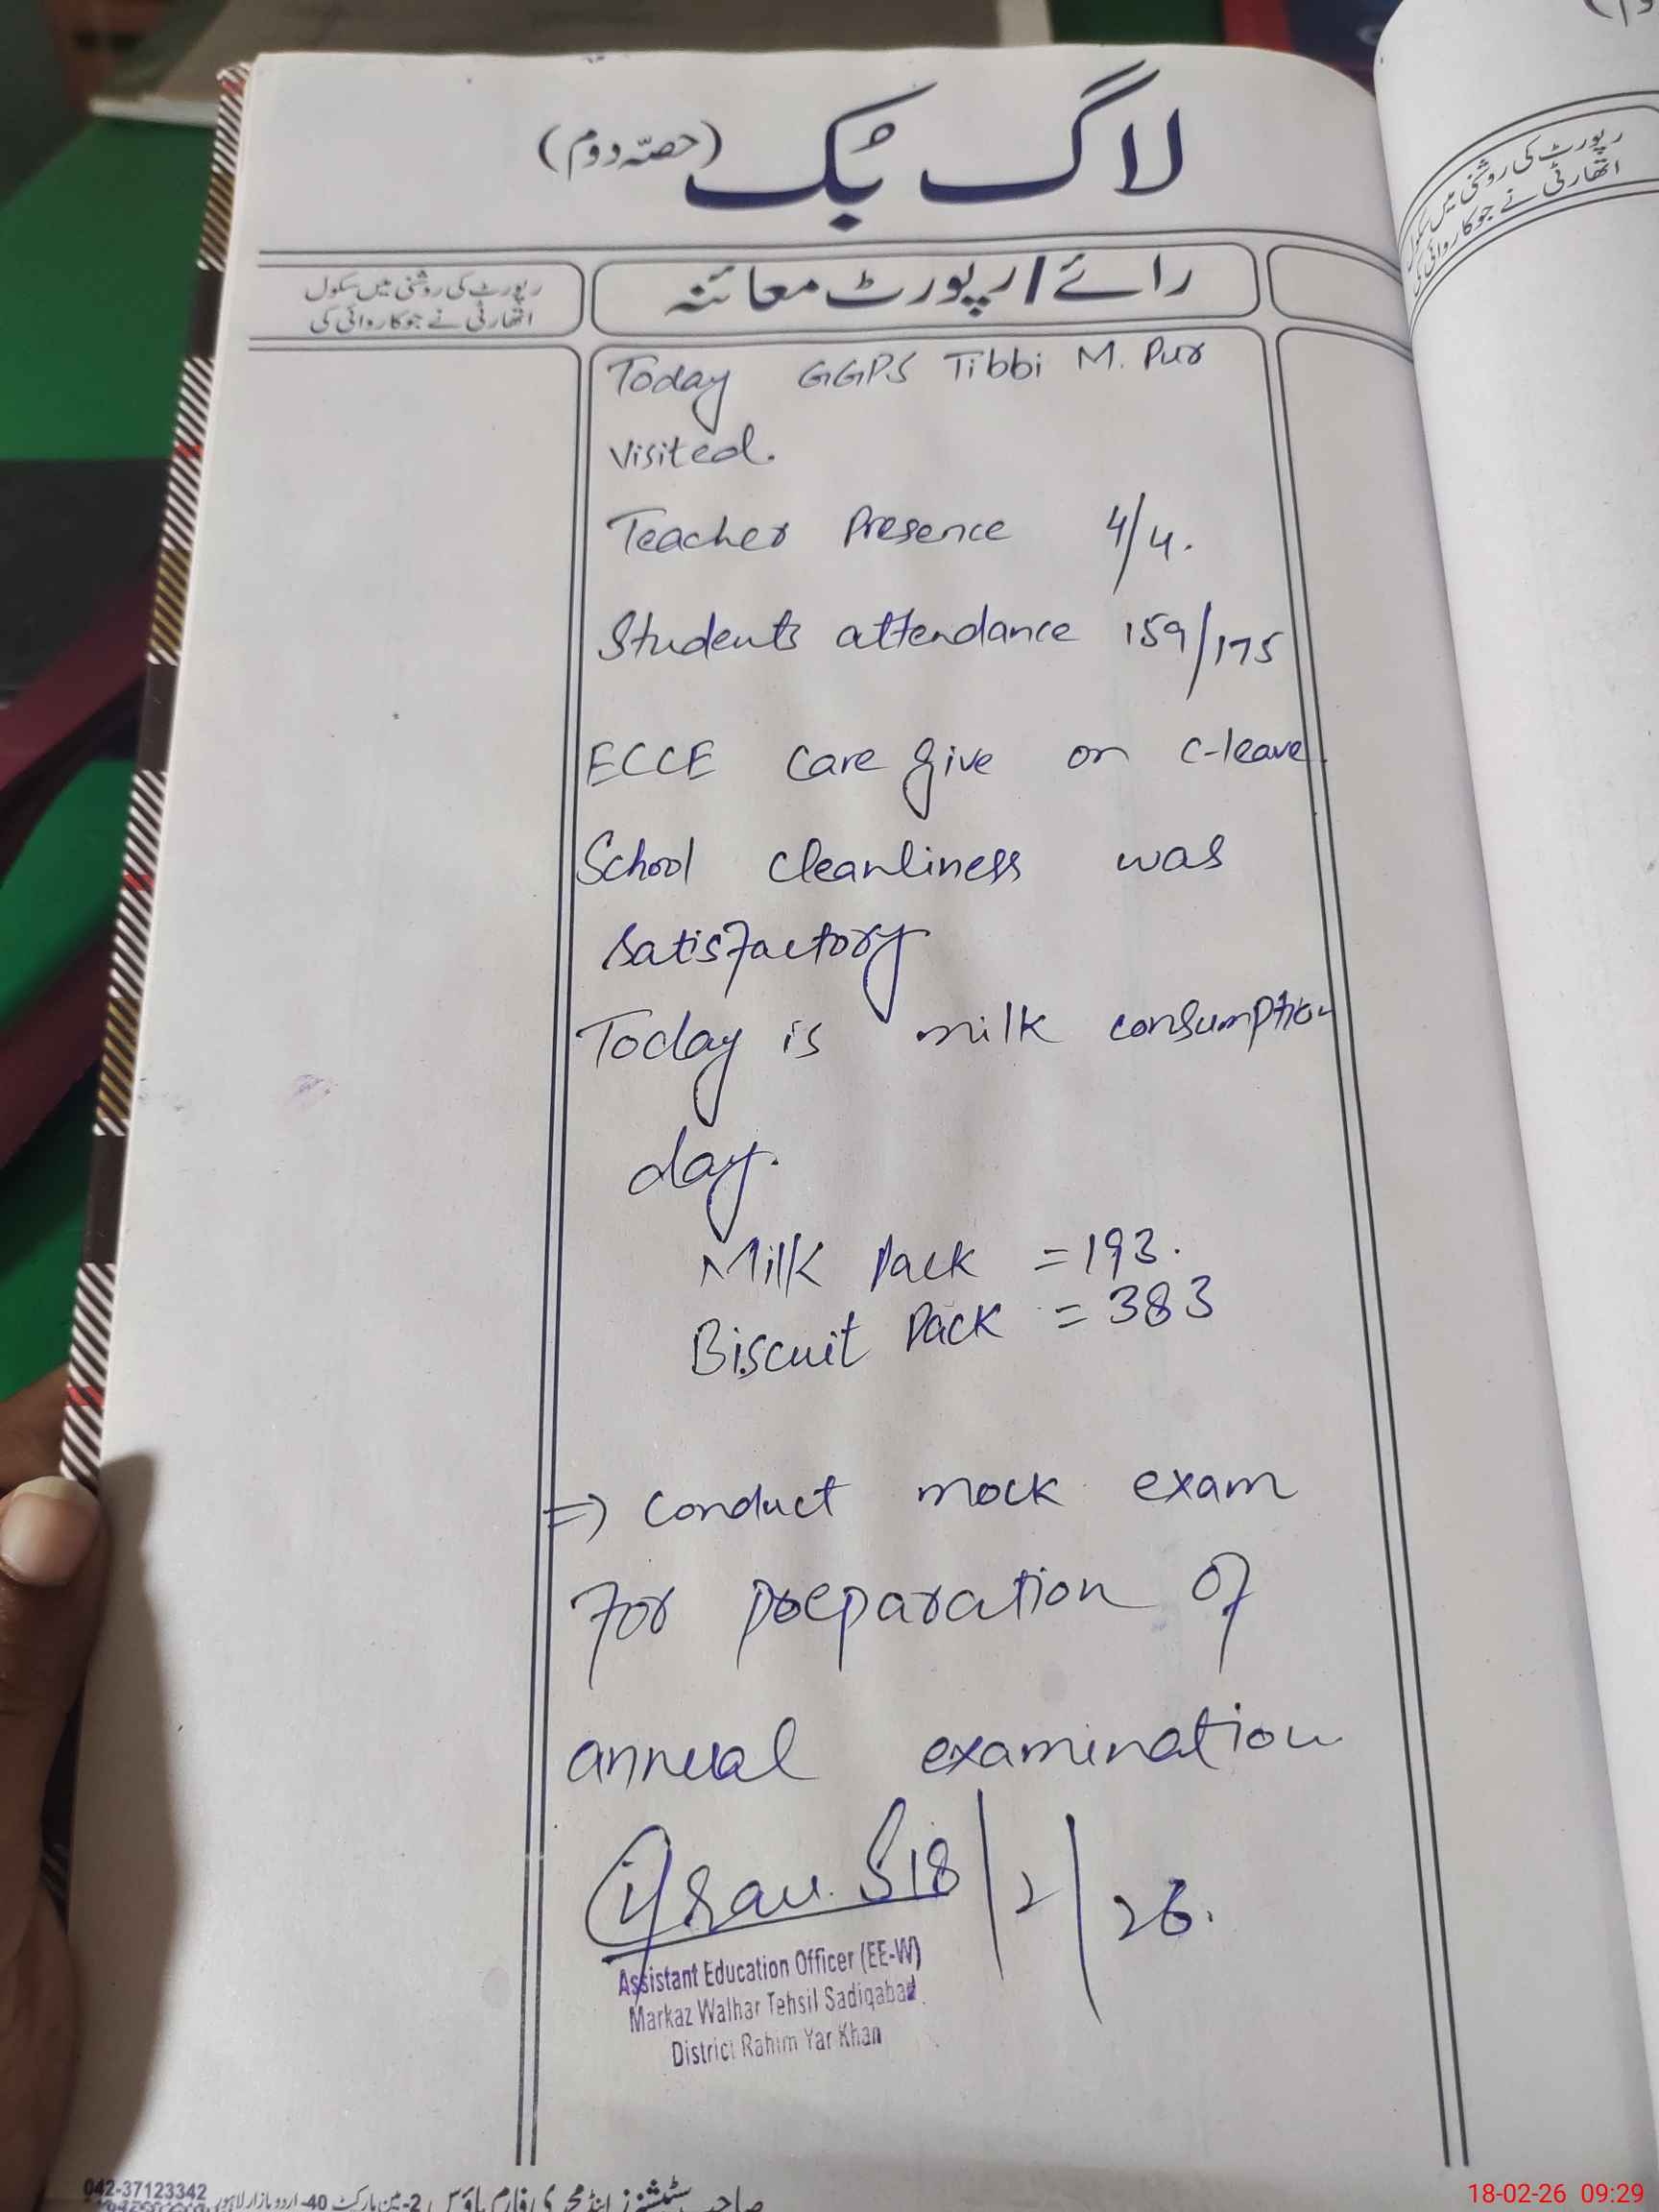 لاگ بُک (حصّہ دوم)
رپورٹ کی روشنی میں سکول
اتھارٹی نے جو کاروائی کی
رائے / رپورٹ معائنہ
رپورٹ کی روشنی میں سکول
اتھارٹی نے جو کاروائی کی
Today GGPS Tibbi M. Pur
visited.
Teacher Presence 4/4.
Students attendance 159/175
ECCE Care give on C-leave
School cleanliness was
satisfactory
Today is milk consumption
day.
Milk Pack = 193.
Biscuit Pack = 383
=> Conduct mock exam
For preparation of
annual examination
18/2/26.
Assistant Education Officer (EE-W)
Markaz Walhar Tehsil Sadiqabad
District Rahim Yar Khan
042-37123342
2-مین مارکیٹ 40-اردو بازار لاہور
18-02-26 09:29